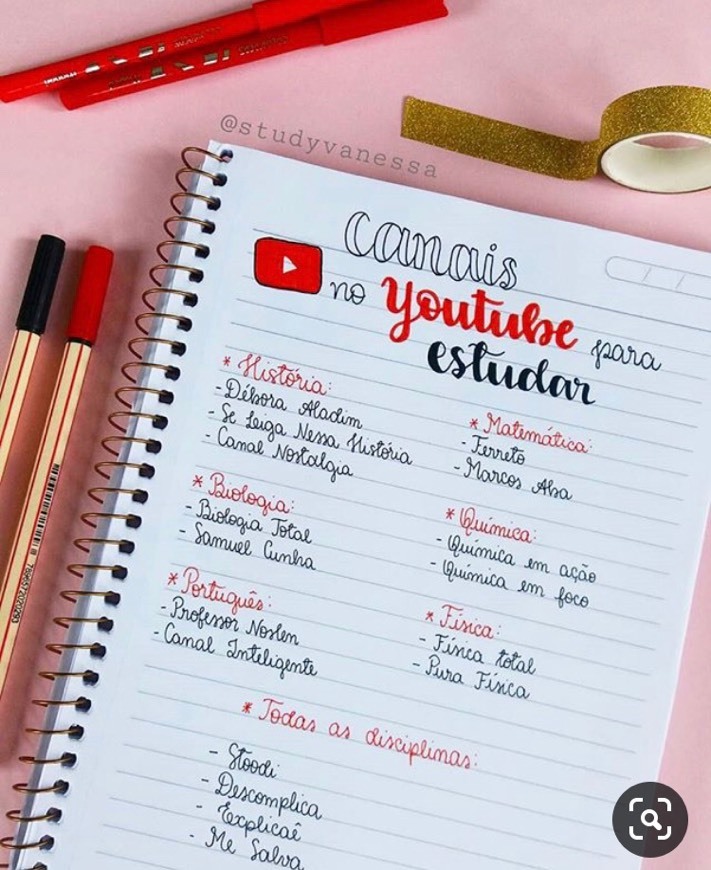 @studyvanessa
canais
no Youtube para
estudar
* História:
- Débora Aladim
- Se Leiga Nessa História
- Canal Nostalgia
* Matemática:
- Ferreto
- Marcos Aba
* Biologia:
- Biologia Total
- Samuel Cunha
* Química:
- Química em ação
- Química em foco
* Português:
- Professor Noslen
- Canal Inteligente
* Física:
- Física total
- Pura Física
* Todas as disciplinas:
- Stoodi
- Descomplica
- Explicaê
- Me Salva